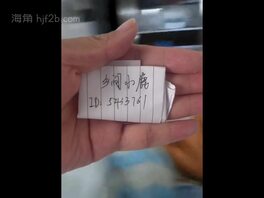 海角 hjf2b.com
乡间小鹿
ID: 5443761